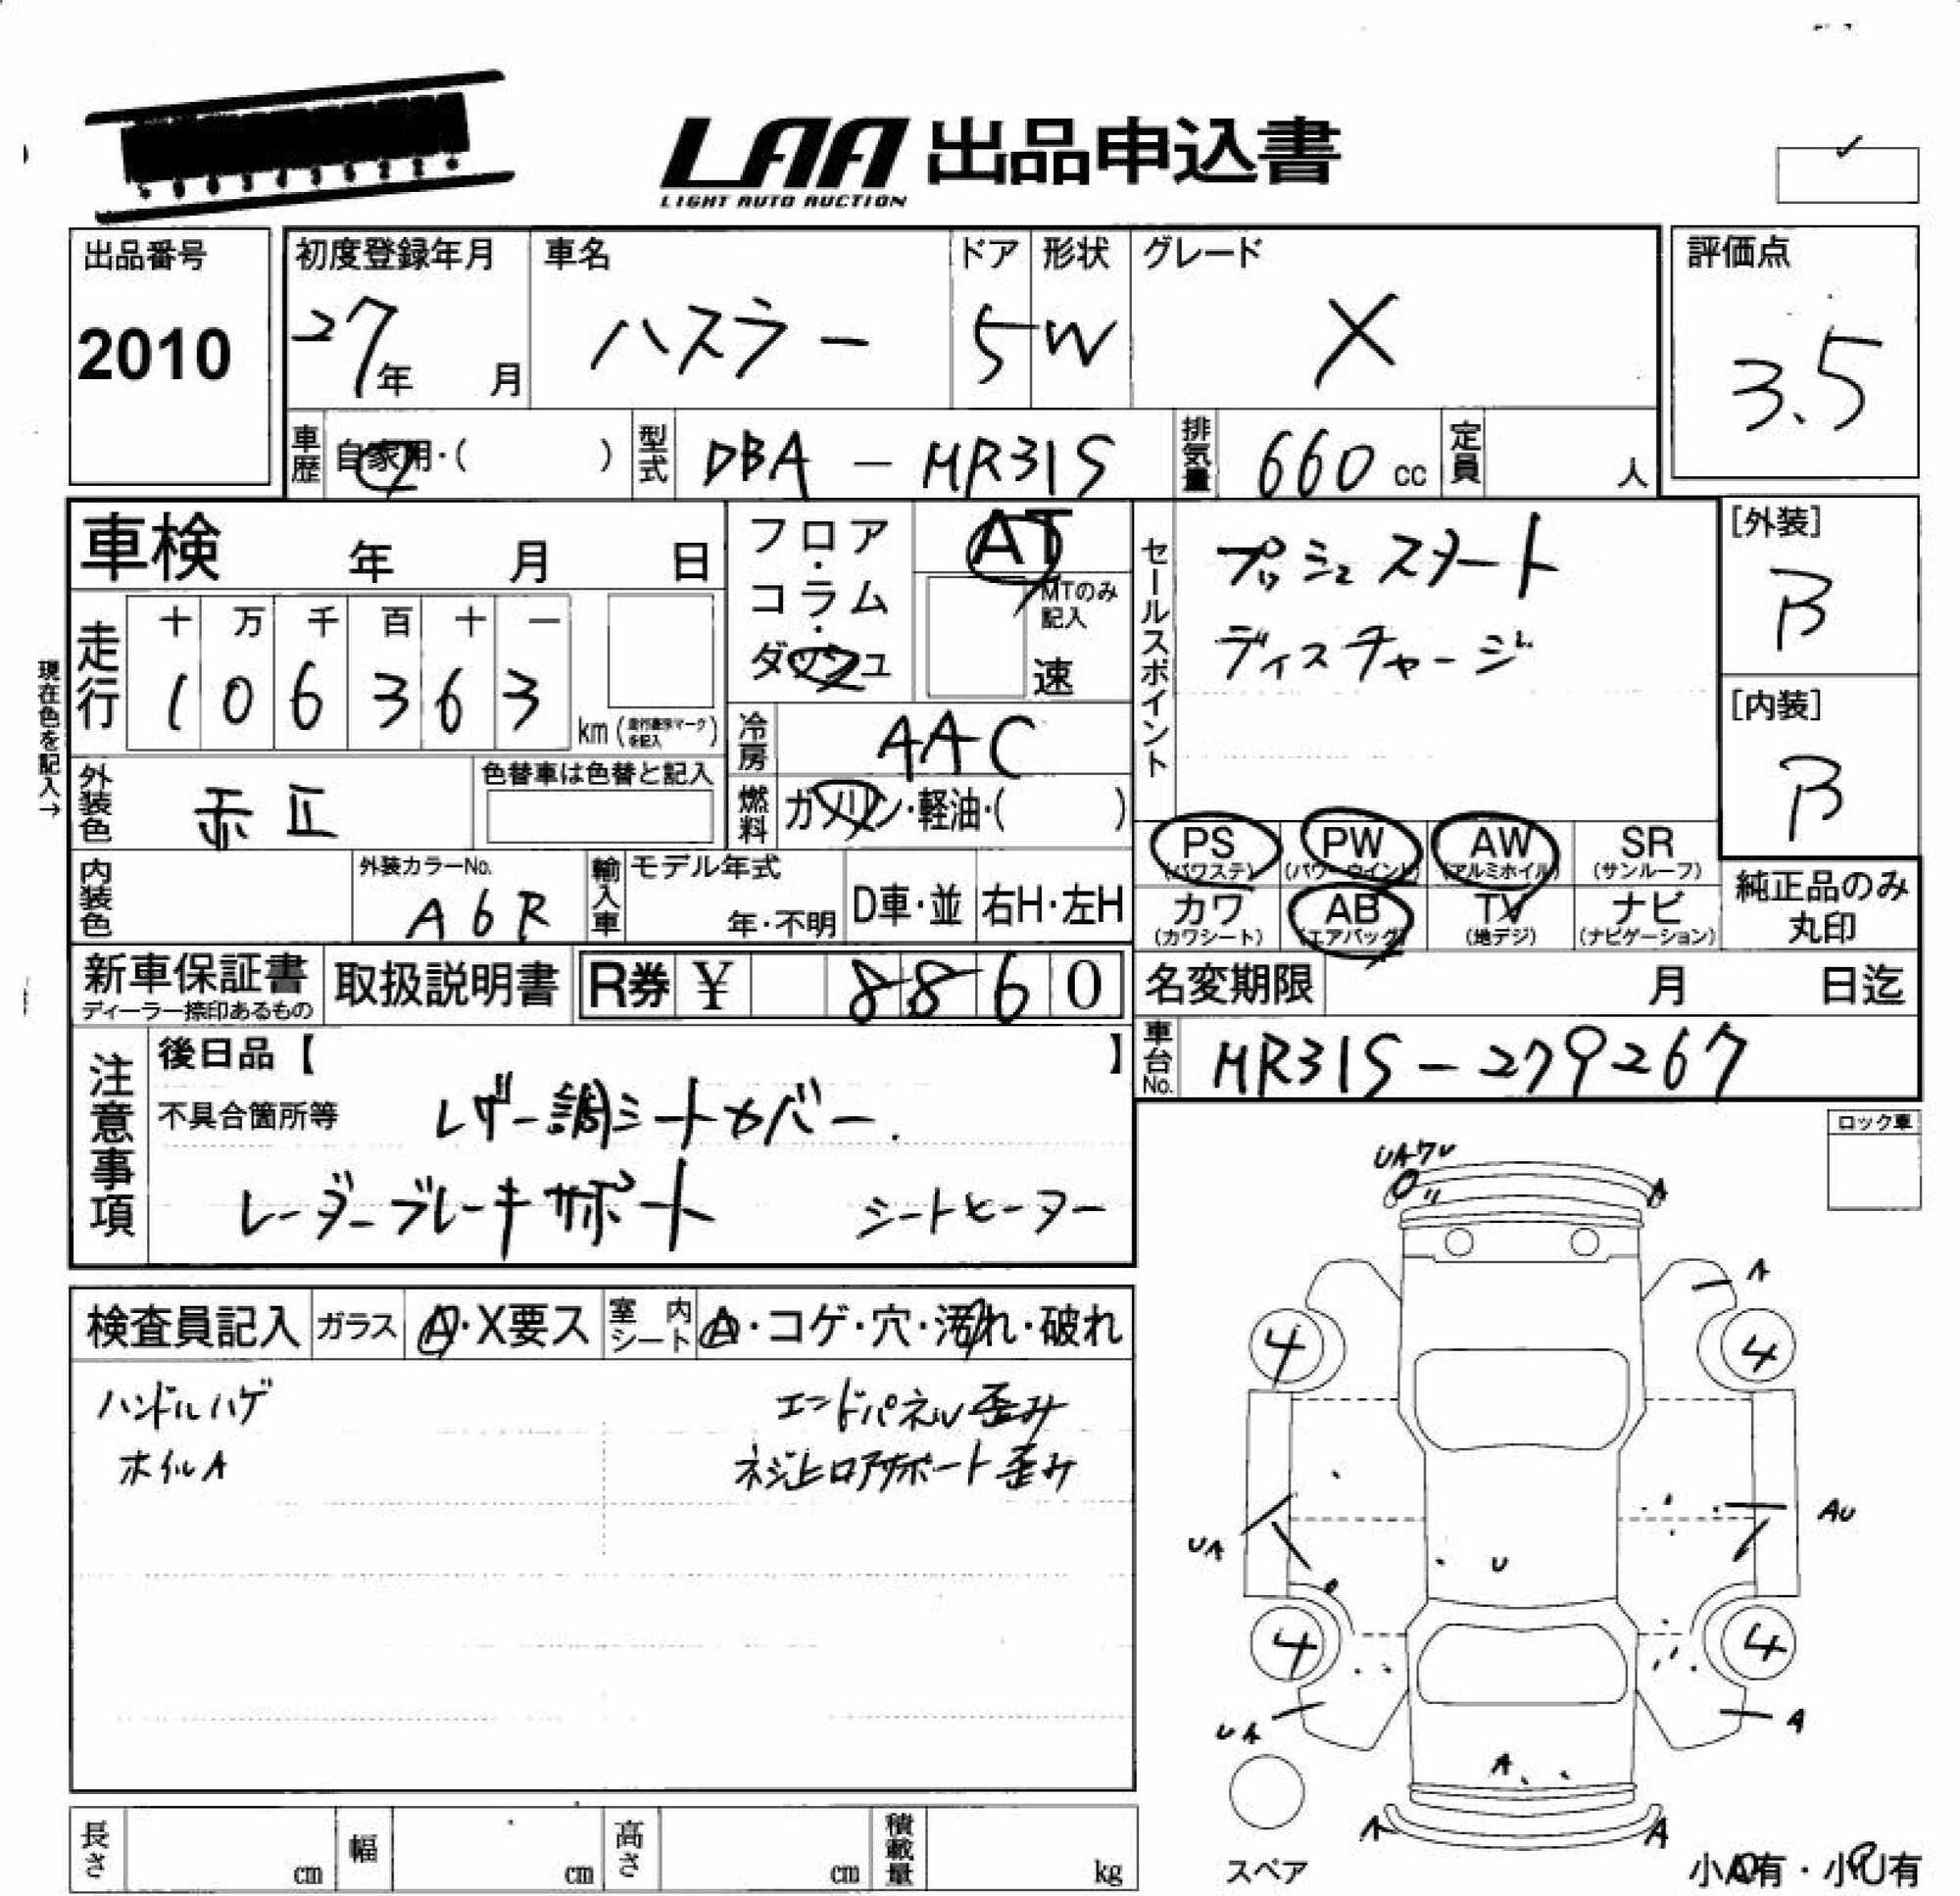 LAA 出品申込書
LIGHT AUTO AUCTION
出品番号
2010
初度登録年月
27年 月
車名
ハスラー
ドア
5
形状
W
グレード
X
評価点
3.5
車歴 自家用・( )
型式 DBA - MR31S
排気量 660 cc
定員 人
車検 年 月 日
フロア・コラム・ダッシュ
AT
MTのみ記入
速
セールスポイント
プッシュスタート
ディスチャージ
[外装]
B
[内装]
B
現在色を記入→
走行
十 万 千 百 十 一
1 0 6 3 6 3 km
冷房 AAC
外装色 赤正
色替車は色替と記入
燃料 ガソリン・軽油・( )
PS (パワステ)
PW (パワーウインド)
AW (アルミホイル)
SR (サンルーフ)
カワ (カワシート)
AB (エアバッグ)
TV (地デジ)
ナビ (ナビゲーション)
純正品のみ丸印
内装色
外装カラーNo.
A6R
輸入車
モデル年式
年・不明
D車・並
右H・左H
新車保証書
ディーラー捺印あるもの
取扱説明書
R券 ¥ 8860
名変期限 月 日迄
車台No. MR31S-279267
注意事項
後日品【 】
不具合箇所等
レザー調シートカバー.
レーダーブレーキサポート シートヒーター
ロック車
検査員記入
ガラス A・X要ス
室内シート A・コゲ・穴・汚れ・破れ
ハンドルハゲ
ホイルA
エンドパネル歪み
ネジ止ロアサポート歪み
A
A
4
4
UA
AU
U
4
4
UA
A
A
A
A
スペア
小A有・小U有
長さ cm
幅 cm
高さ cm
積載量 kg